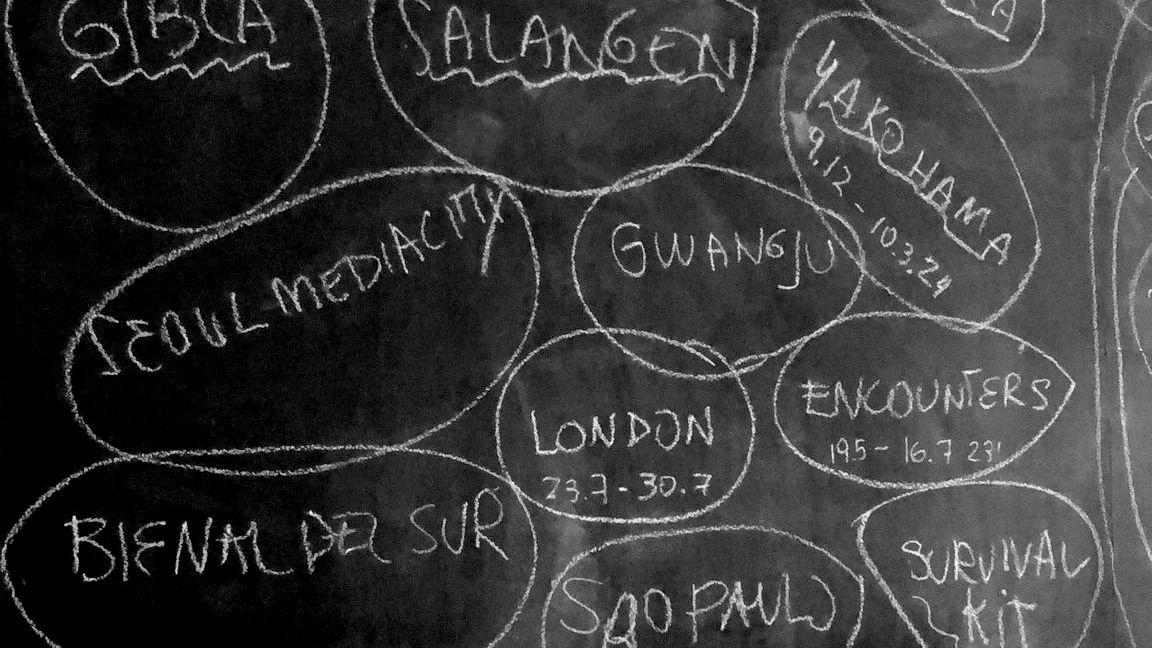 GIBCA
SALANGEN
YAKOHAMA
9.12 - 10.3.24
SEOUL MEDIACITY
GWANGJU
LONDON
23.7 - 30.7
ENCOUNTERS
19.5 - 16.7 23'
BIENAL DEL SUR
SAO PAULO
SURVIVAL
KIT